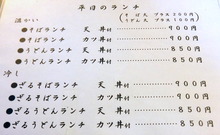 平日のランチ
(そば大 プラス250円)
(うどん大 プラス100円)
温かい
●そばランチ 天丼付 900円
●そばランチ カツ丼付 900円
●うどんランチ 天丼付 850円
●うどんランチ カツ丼付 850円
冷し
●ざるそばランチ 天丼付 900円
●ざるそばランチ カツ丼付 900円
●ざるうどんランチ 天丼付 850円
●ざるうどんランチ カツ丼付 850円